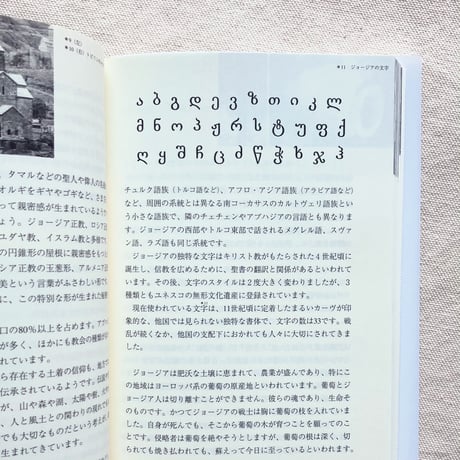 ●9（左）
●10（右）トビリシ
、タマルなどの聖人や偉人の名
オルギをギヤやゴギなど、さま
って親密感が生まれているよう
ょう。ジョージア正教、ロシア正
ユダヤ教、イスラム教と多様で
の円錐形の屋根に親密感をもつ
シア正教の玉葱形、アルメニア
美という言葉がふさわしい形です
に、この特別な形が生まれた
口の80％以上を占めます。アブ
が多く、ほかにも教会の種類が
れています。
ら存在する土着の信仰も、地方
伝承されているようです。伝統
が、山や森や湖、太陽や樹、火
、人と風土との関わりの現れで
でも大切なものだという考え
生まれてきています。
●11 ジョージアの文字
ა ბ გ დ ე ვ ზ თ ი კ ლ
მ ნ ო პ ჟ რ ს ტ უ ფ ქ
ღ ყ შ ჩ ც ძ წ ჭ ხ ჯ ჰ
チュルク語族（トルコ語など）、アフロ・アジア語族（アラビア語など）
など、周囲の系統とは異なる南コーカサスのカルトヴェリ語族とい
う小さな語族で、隣のチェチェンやアブハジアの言語とも異なりま
す。ジョージアの西部やトルコ東部で話されるメグレル語、スヴァ
ン語、ラズ語も同じ系統です。
ジョージアの独特な文字はキリスト教がもたらされた4世紀頃に
誕生し、信教を広めるために、聖書の翻訳と関係があるといわれて
います。その後、文字のスタイルは2度大きく変わりましたが、3
種類ともユネスコの無形文化遺産に登録されています。
現在使われている文字は、11世紀頃に定着したまるいカーヴが印
象的な、他国では見られない独特な書体で、文字の数は33です。戦
乱が続くなか、他国の支配下におかれても人々に大切にされてき
ました。
ジョージアは肥沃な土壌に恵まれて、農業が盛んであり、特にこ
の地域はヨーロッパ系の葡萄の原産地といわれています。葡萄とジ
ョージア人は切り離すことができません。彼らの魂であり、生命そ
のものです。かつてジョージアの戦士は胸に葡萄の枝を入れていま
した。自身が死んでも、そこから葡萄の木が育つことを願ってのこ
とです。侵略者は葡萄を絶やそうとしますが、葡萄の根は深く、切
られても焼き払われても、蘇えって今日に至っているといわれます。